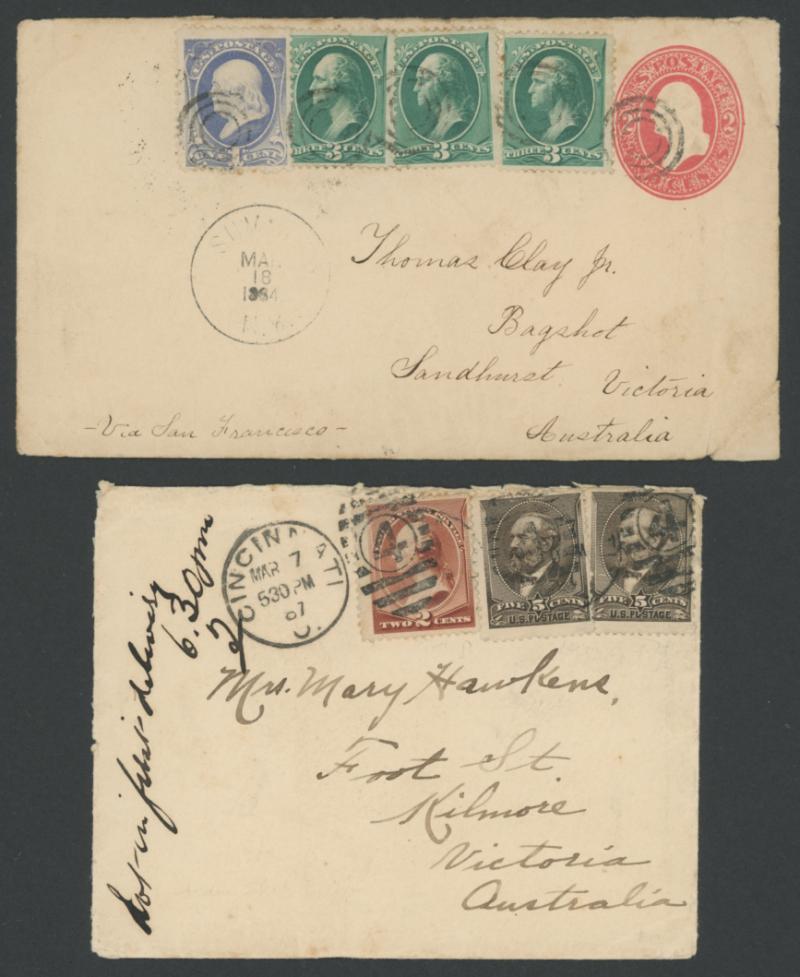 U.S. POSTAGE
U.S. POSTAGE
U.S. POSTAGE
U.S. POSTAGE
CENT
THREE 3 CENTS
THREE 3 CENTS
THREE 3 CENTS
MAR
18
1884
N.Y.
Thomas Clay Jr.
Bagshot
Sandhurst Victoria
Australia
-Via San Francisco-
CINCINNATI
MAR 7
530PM
87
O.
4
TWO 2 CENTS
FIVE 5 CENTS
U.S. POSTAGE
4
FIVE 5 CENTS
U.S. POSTAGE
Not in first delivery
6.30pm
Mrs. Mary Hawkens,
Foot St.
Kilmore
Victoria
Australia